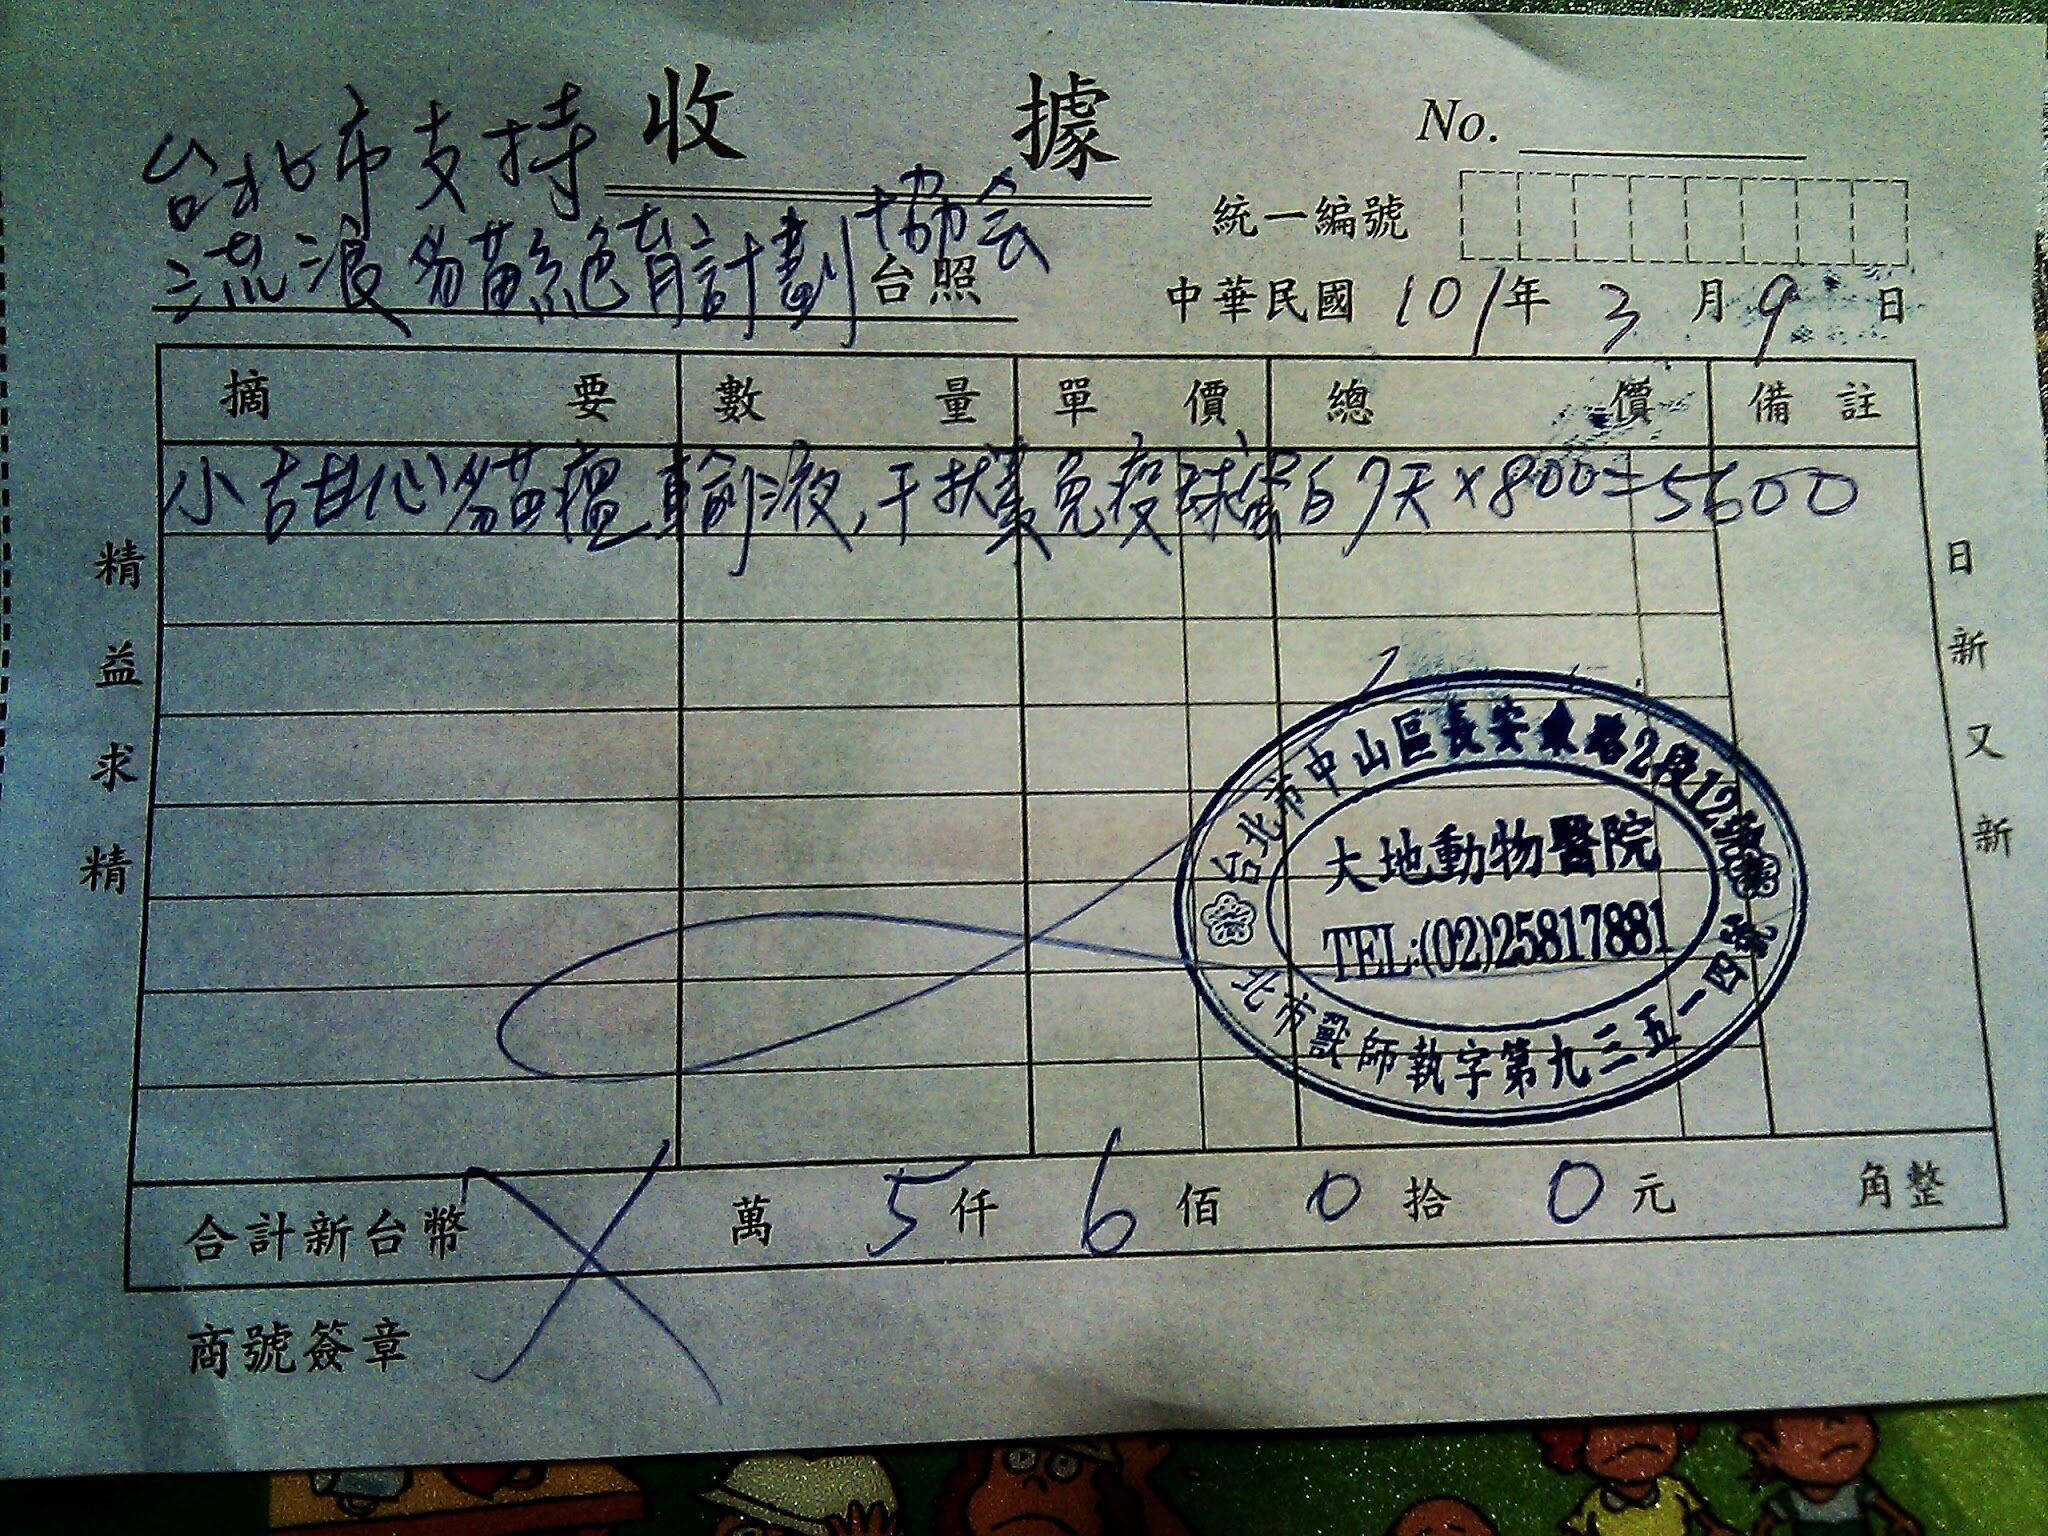 收據
No.
台北市支持
流浪貓絕育計劃協会
台照
統一編號
中華民國 101年 3月9日
摘要 數量 單價 總價 備註
小甜心貓瘟輸液,干扰素免疫球蛋白7天×800=5600
精益求精
日新又新
台北市中山區長安東路2段12號
大地動物醫院
TEL:(02)25817881
北市獸師執字第九三五一四號
合計新台幣 X 萬 5仟 6佰 0拾 0元 角整
商號簽章